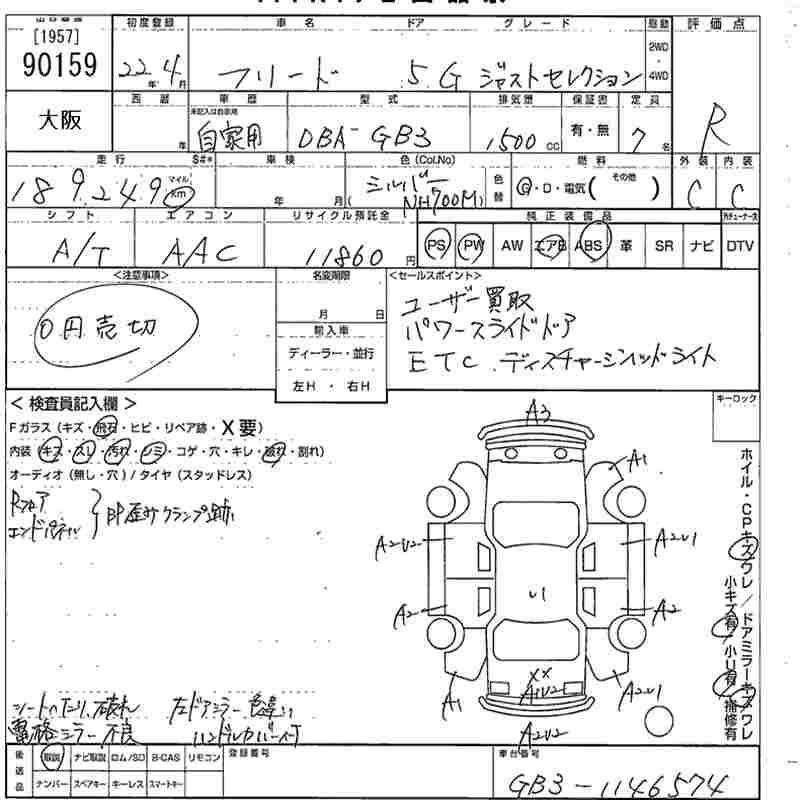 [1957]
90159
大阪
初度登録 車名 ドア グレード 駆動 評価点
22年 4月 フリード 5 G ジャストセレクション 2WD・4WD
R
西暦 車歴 型式 排気量 保証書 定員
年 未記入は自家用 自家用 DBA-GB3 1500CC 有・無 7名
走行 S#* 車検 色(Col.No) 燃料 外装 内装
189249 マイル km 年 月 シルバー(NH700M) 色替 G・D・電気( その他 ) C C
シフト エアコン リサイクル預託金 純正装備品
A/T AAC 11860円 PS PW AW エアB ABS 革 SR ナビ DTV
<注意事項> 名変期限 <セールスポイント>
0円売切
月 日
輸入車
ディーラー・並行
左H・右H
ユーザー買取
パワースライドドア
ETC ディスチャージヘッドライト
キーロック
< 検査員記入欄 >
Fガラス(キズ・飛石・ヒビ・リペア跡・X要)
内装(キズ・スレ・汚れ・シミ・コゲ・穴・キレ・破れ・割れ)
オーディオ(無し・穴)/タイヤ(スタッドレス)
Rフロア
エンドパネル
クランプ跡
A3
A1
A2U2 A2U1
A2 A2
U1
XX
A1U2
A1 A2U1
A2U2
ホイル・CPキズワレ/ドアミラーキズワレ
小キズ有/小U有/補修有
シートへたり、破れ 左ドアミラー色違い
電格ミラー不良 ハンドルカバー付
後送品 取説 ナビ取説 ロム/SD B-CAS リモコン 登録番号 車台番号
ナンバー スペアキー キーレス スマートキー
GB3-1146574